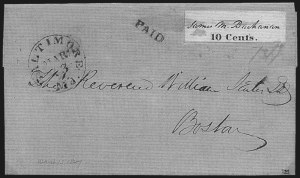 PAID
James M. Buchanan
10 Cents.
BALTIMORE
MAR
The Reverend William
Boston